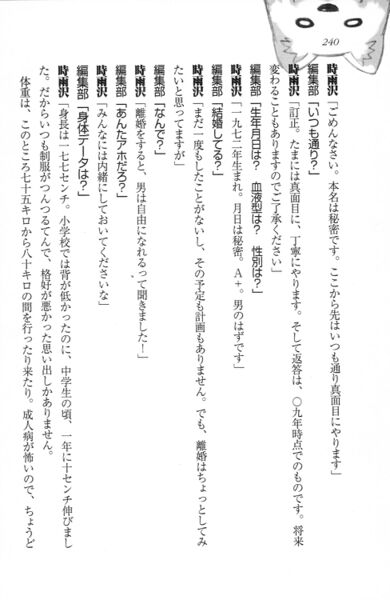 240
時雨沢「ごめんなさい。本名は秘密です。ここから先はいつも通り真面目にやります」
編集部「いつも通り?」
時雨沢「訂正。たまには真面目に、丁寧にやります。そして返答は、〇九年時点でのものです。将来
変わることもありますのでご了承ください」
編集部「生年月日は? 血液型は? 性別は?」
時雨沢「一九七二年生まれ。月日は秘密。A+。男のはずです」
編集部「結婚してる?」
時雨沢「まだ一度もしたことがないし、その予定も計画もありません。でも、離婚はちょっとしてみ
たいと思ってますが」
編集部「なんで?」
時雨沢「離婚をすると、男は自由になれるって聞きました!」
編集部「あんたアホだろ?」
時雨沢「みんなには内緒にしておいてくださいな」
編集部「身体データは?」
時雨沢「身長は一七七センチ。小学校では背が低かったのに、中学生の頃、一年に十センチ伸びまし
た。だからいつも制服がつんつるてんで、格好が悪かった思い出しかありません。
体重は、このところ七十五キロから八十キロの間を行ったり来たり。成人病が怖いので、ちょうど